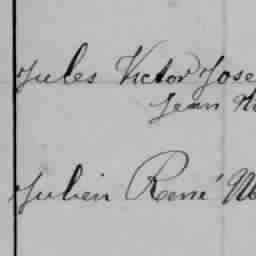 Jules Victor Jose
Jean
Julien René